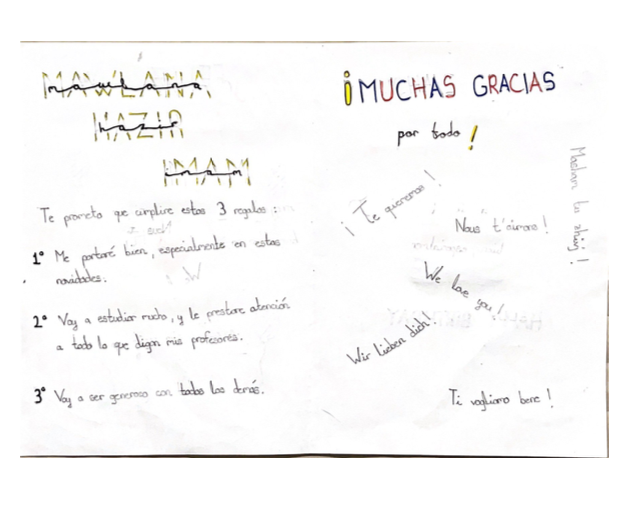 MAWLANA
mawlana
HAZIR
hazir
IMAM
imam
Te prometo que cumplire estas 3 reglas :
1° Me portaré bien, especialmente en estas
navidades.
2° Voy a estudiar mucho, y le prestare atención
a todo lo que digan mis profesores.
3° Voy a ser generoso con todos los demás.
¡MUCHAS GRACIAS
por todo !
¡ Te queremos !
Nous t'aimons !
We love you!
Wir lieben dich!
Ti vogliamo bene !